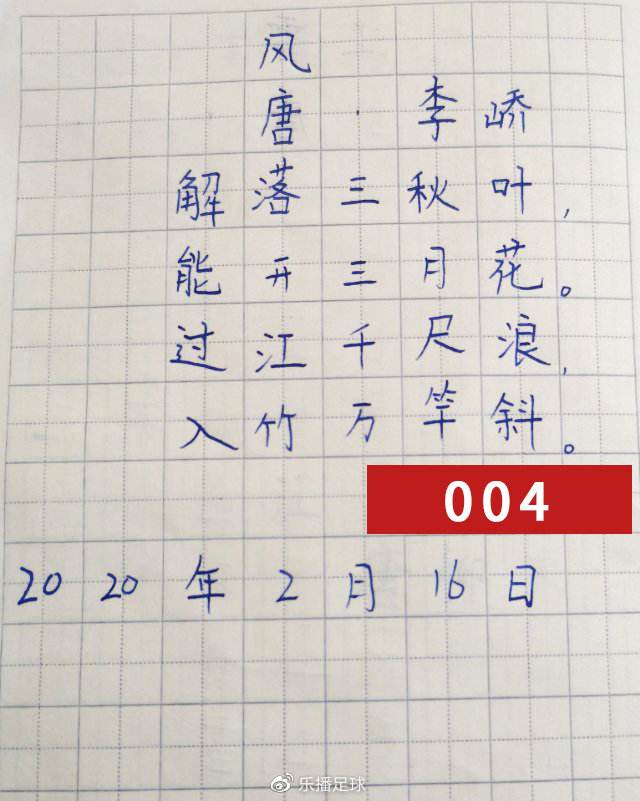 风
唐·李峤
解落三秋叶,
能开二月花。
过江千尺浪,
入竹万竿斜。
004
2020年2月16日
乐播足球